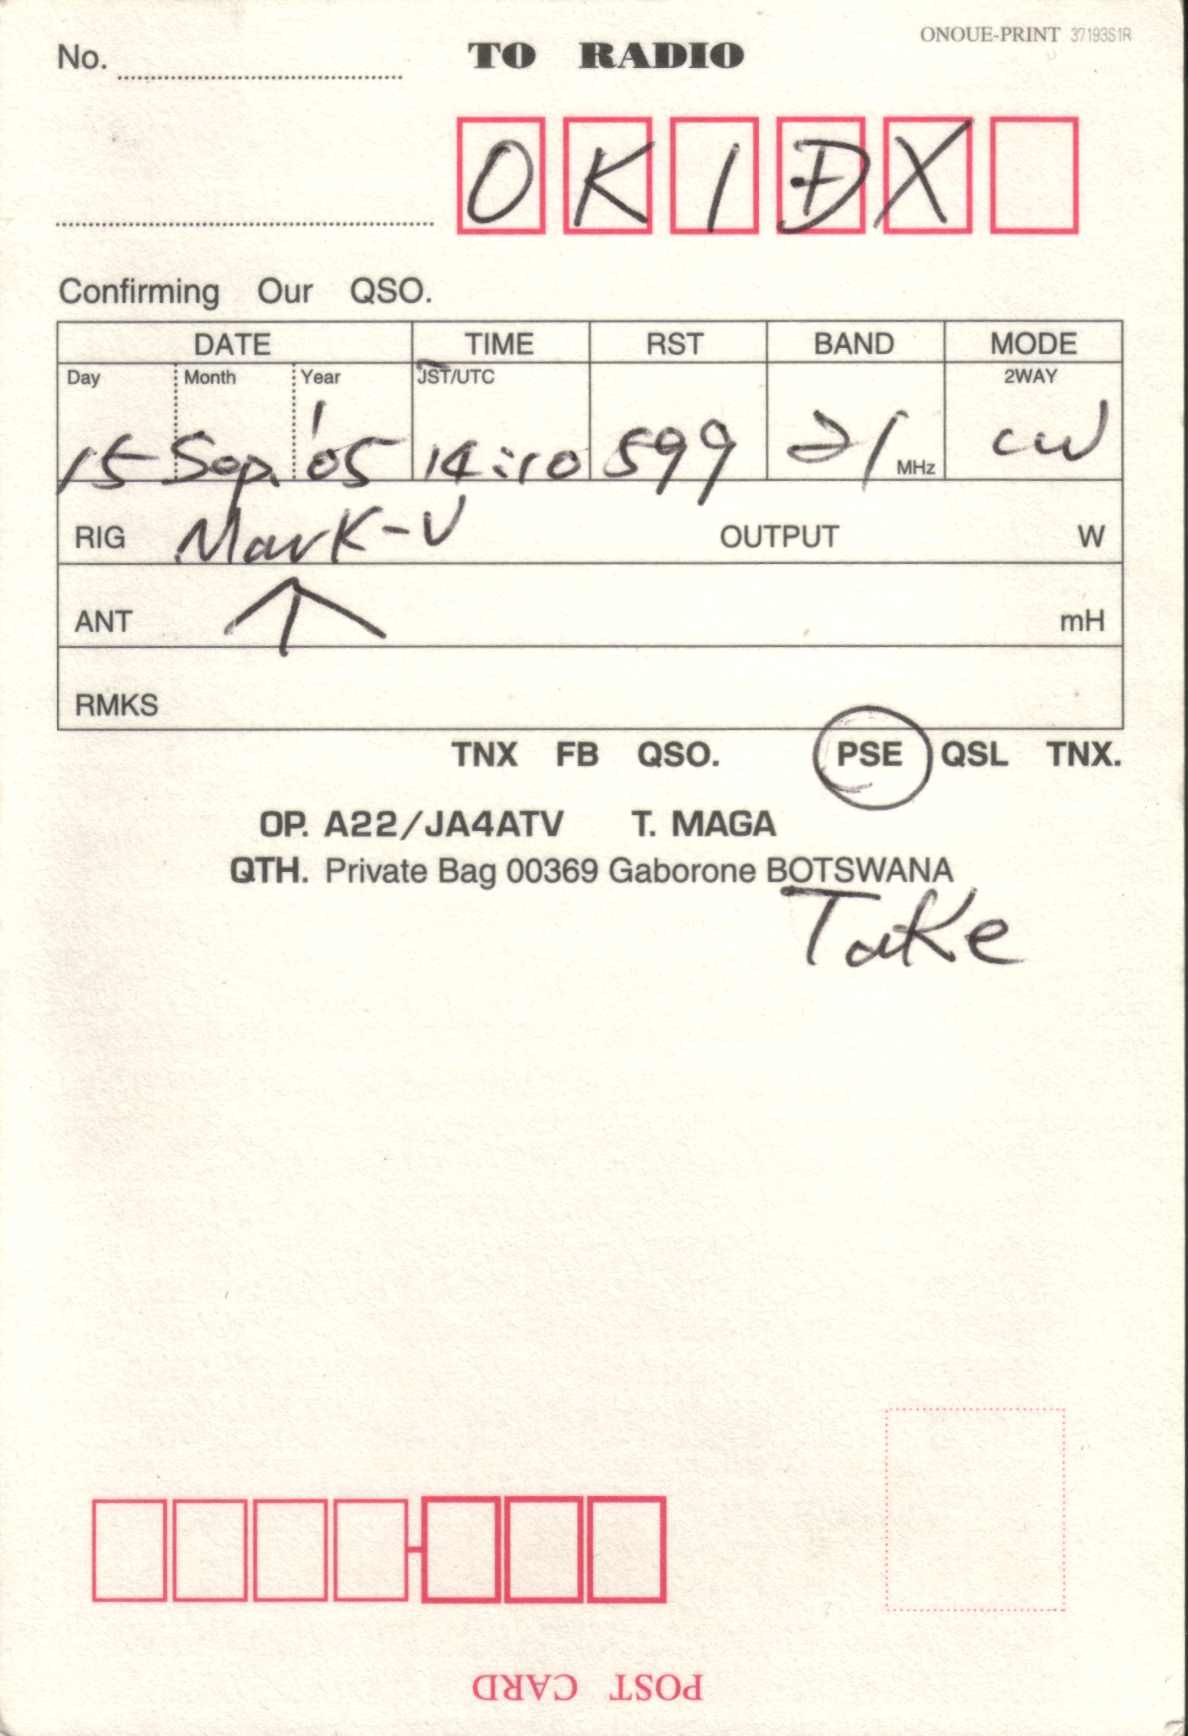 ONOUE-PRINT 37193S1R
No. TO RADIO
OK1DX
Confirming Our QSO.
DATE TIME RST BAND MODE
Day Month Year JST/UTC 2WAY
15 Sep. '05 14:10 599 21 MHz CW
RIG Mark-V OUTPUT W
ANT mH
RMKS
TNX FB QSO. PSE QSL TNX.
OP. A22/JA4ATV T. MAGA
QTH. Private Bag 00369 Gaborone BOTSWANA
Take
POST CARD